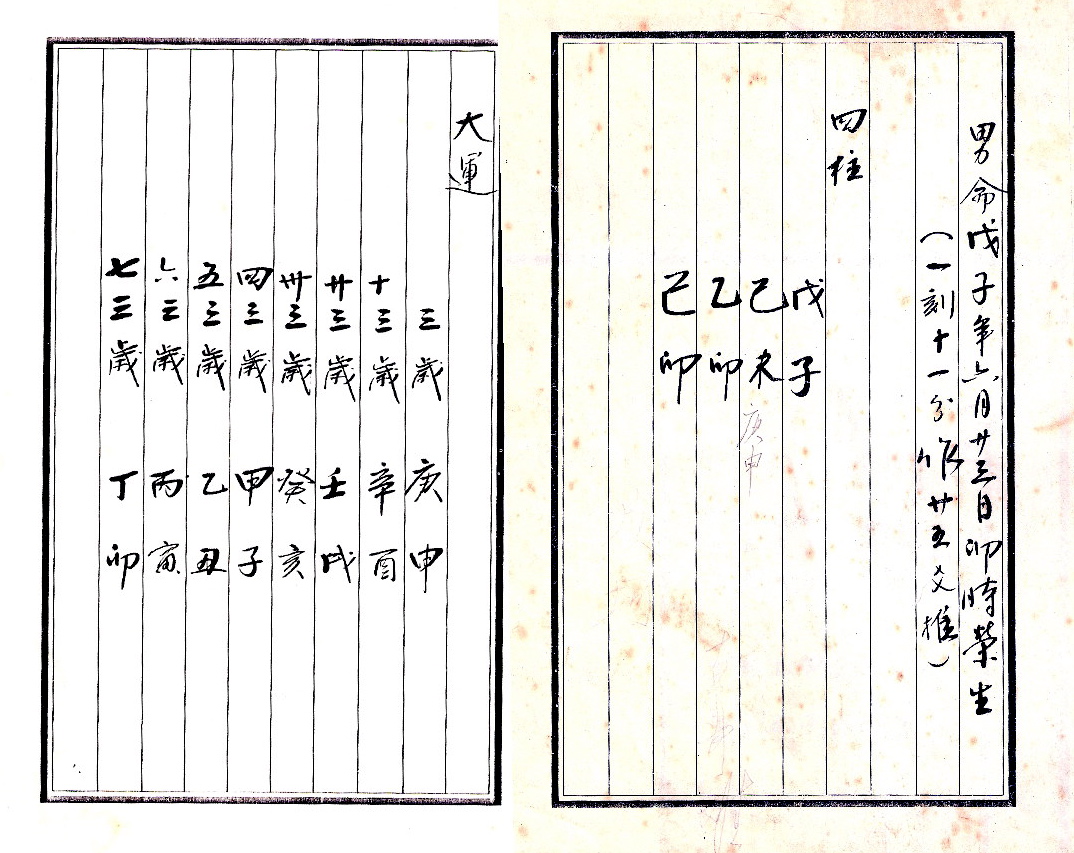 男命戊子年六月廿三日卯時榮生
（一刻十一分作廿五爻推）
四柱
戊子
己未
庚申
乙卯
己卯
大運
三歲 庚申
十三歲 辛酉
廿三歲 壬戌
卅三歲 癸亥
四三歲 甲子
五三歲 乙丑
六三歲 丙寅
七三歲 丁卯